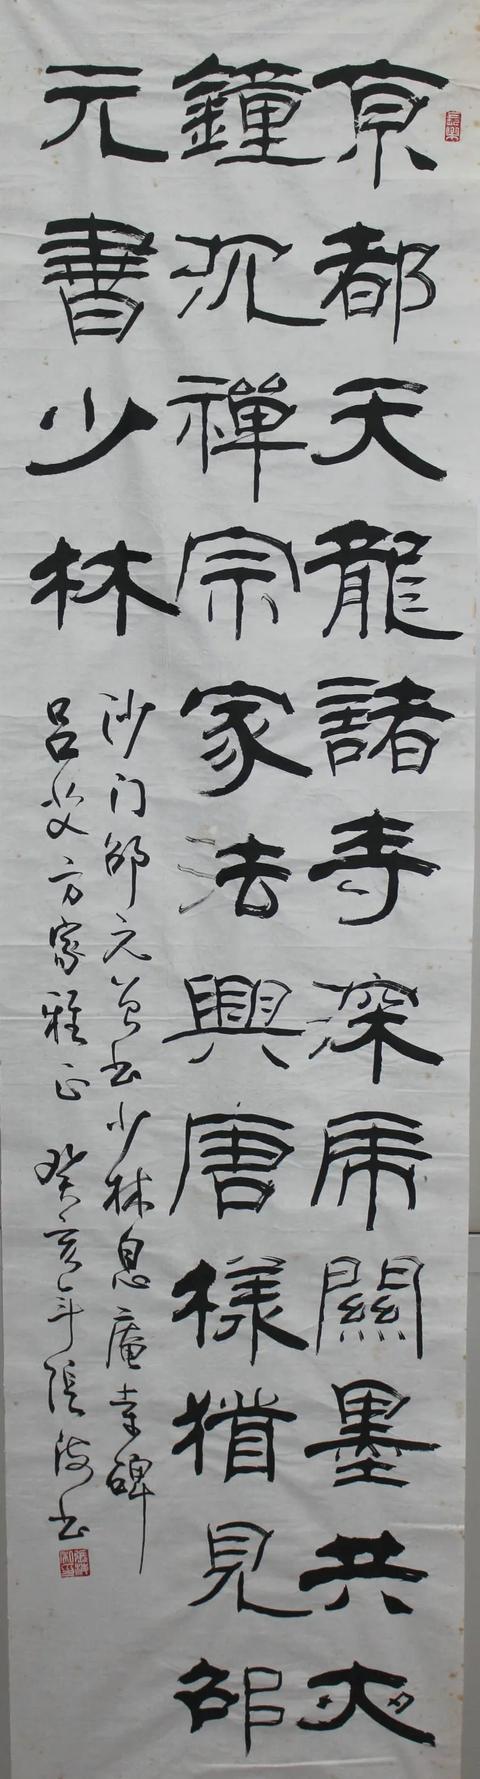 京都天龍諸寺深虎關墨共
鐘沉禪宗家法興唐樣猶見邵
元書少林
沙门邵元曾书少林息庵碑
吕方家雅正 癸亥年张海书
長樂